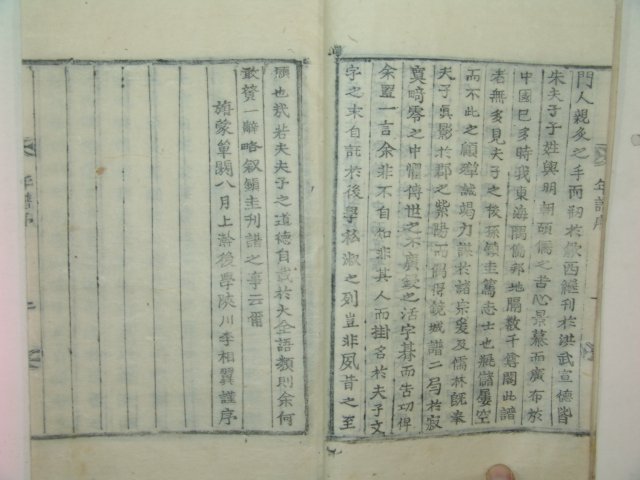 門人親炙之手而剏於歙西繼刊於洪武宣德皆
朱夫子子姓與明朝碩儒之者心景慕而廣布於
中國已多時我東海隅偏邦地隔數千鄕閭此譜
者無多見夫子之後孫鎭圭篤志士也瓶儲屢空
而不此之顧殫誠竭力謀於諸宗裒及儒林旣奉
夫子眞影於郡之紫陽而偶得綾城譜二局於寂
寞畸零之中懼傳世之不廣鋟之活字碁而告功俾
余置一言余非不自知非其人而掛名於夫子文
字之末自託於後學私淑之列豈非夙昔之至
願也哉若夫夫子之道德自載於大全語類則余何
敢贊一辭略叙鎭圭刊譜之事云爾
旃蒙單閼八月上澣後學陜川李相翼謹序
年譜序
年譜序